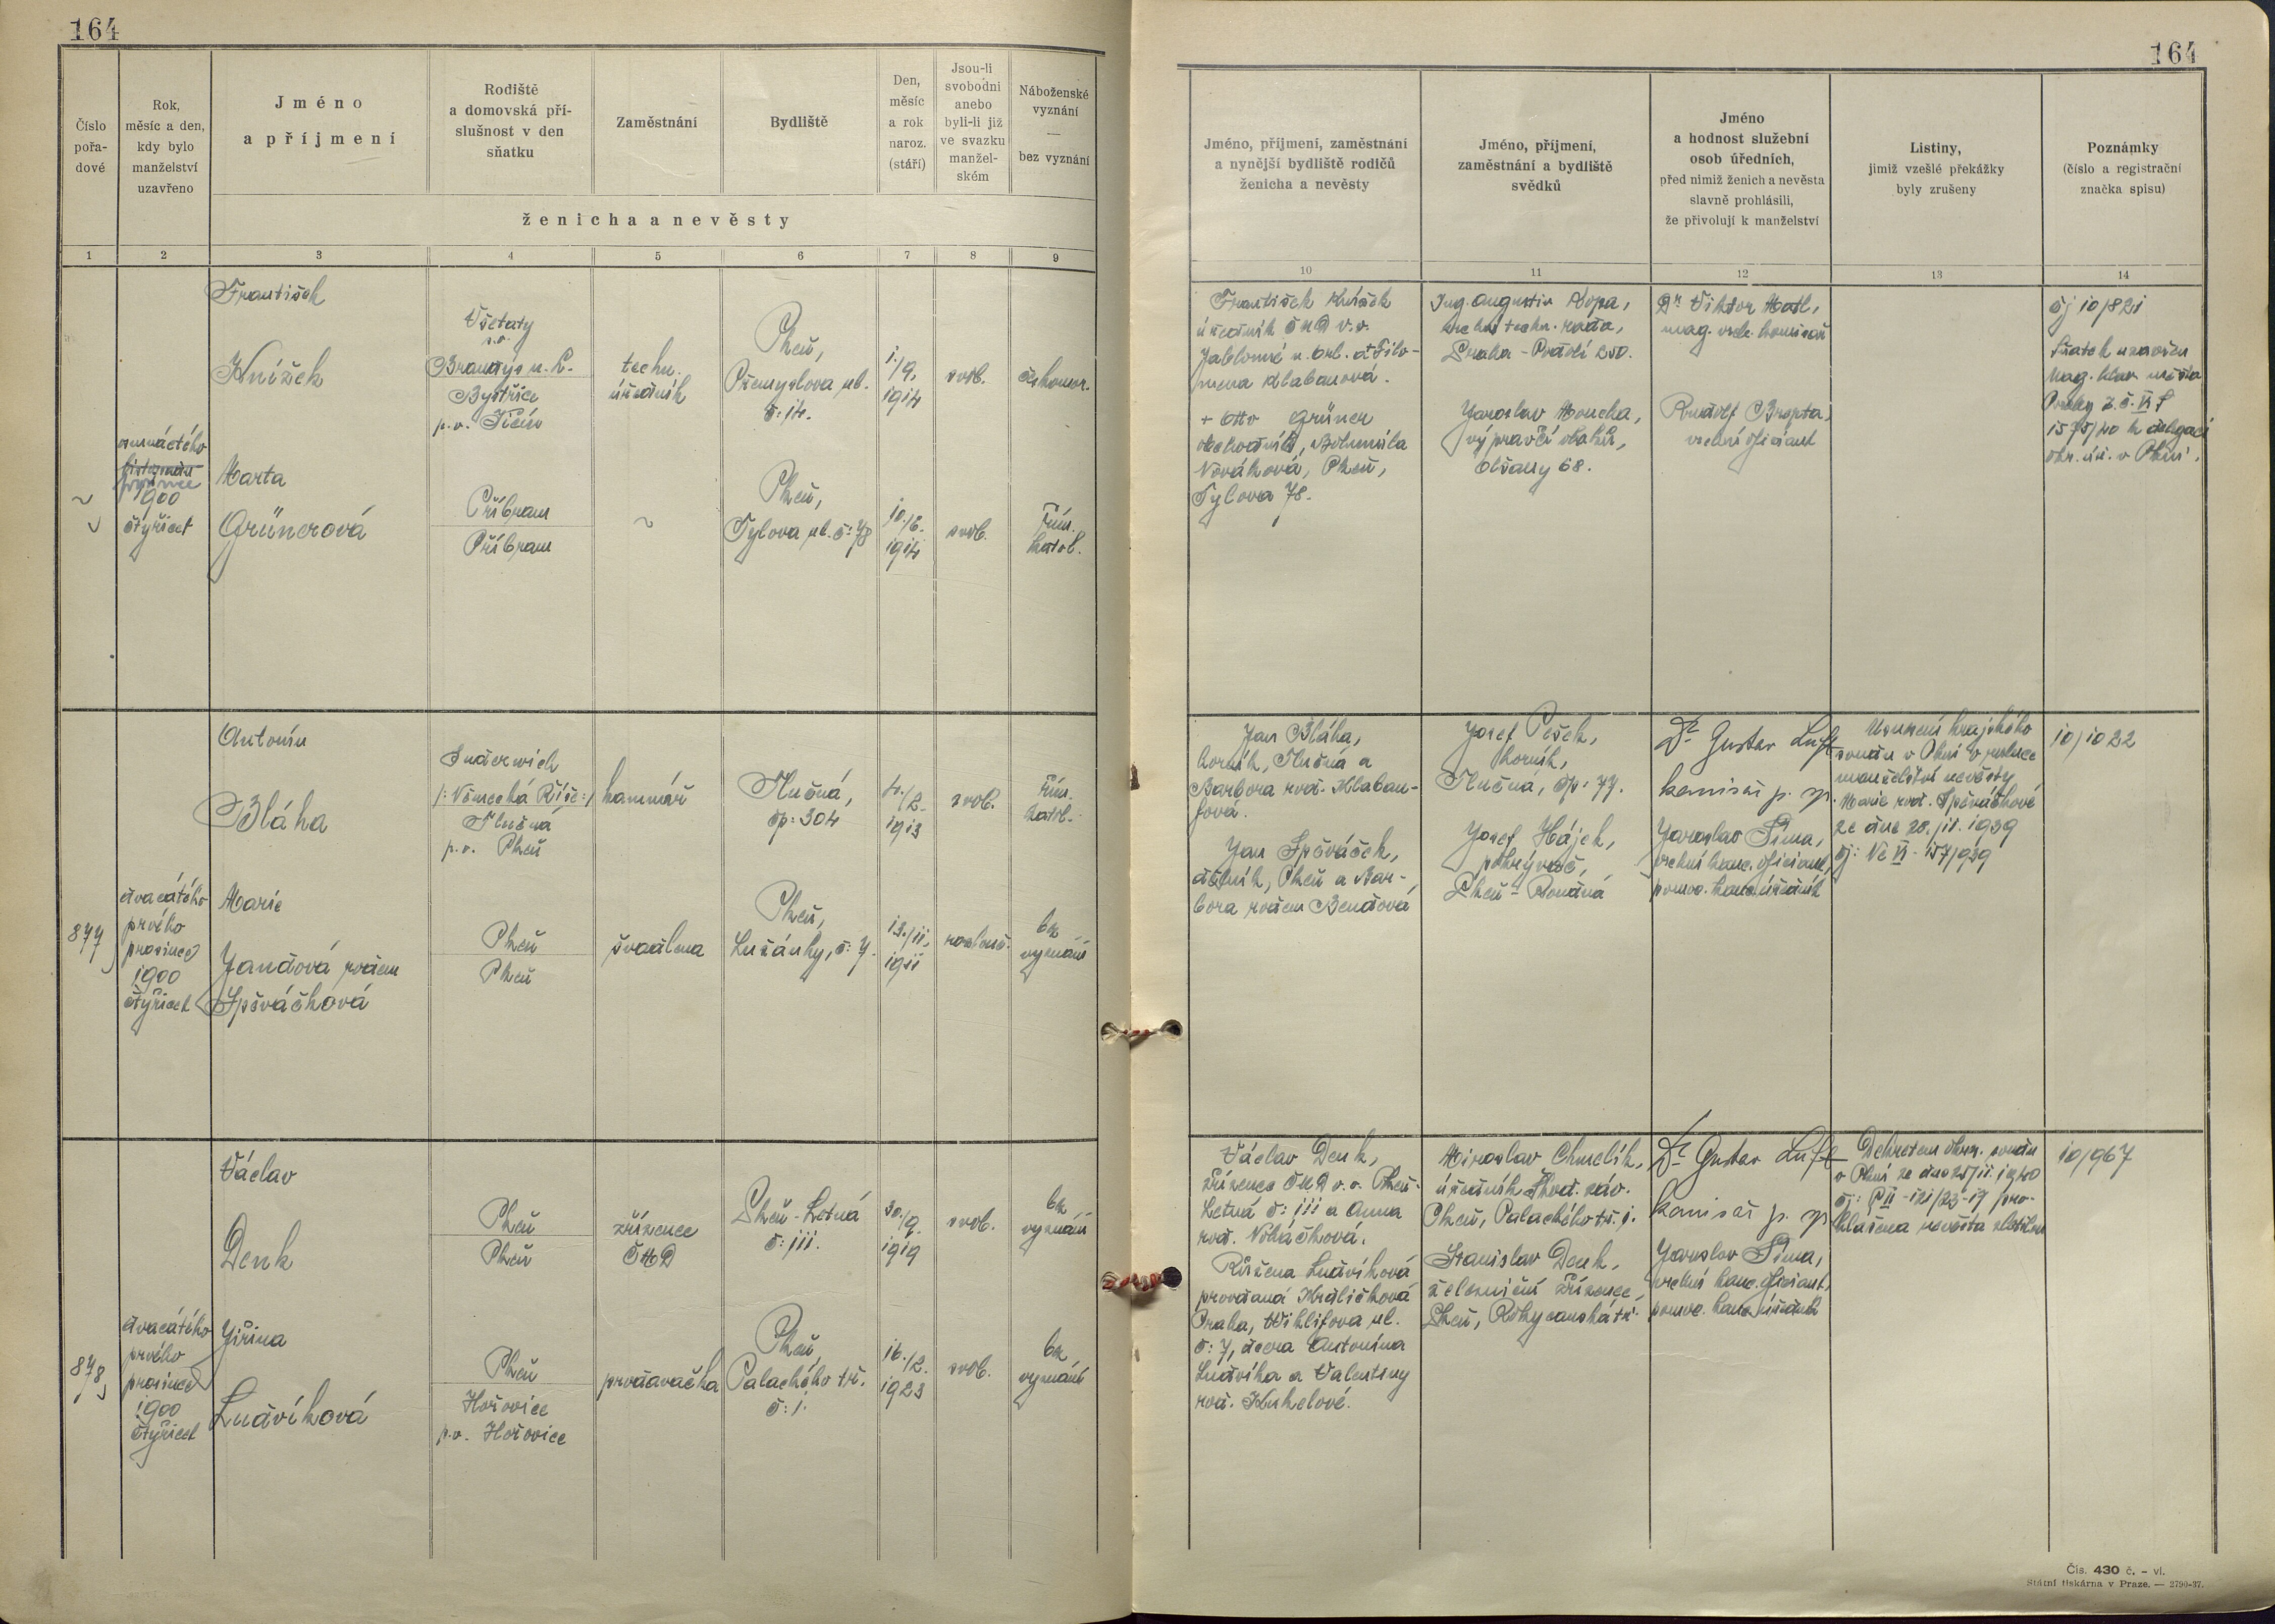 164
164
Číslo
pořa-
dové
Rok,
měsíc a den,
kdy bylo
manželství
uzavřeno
Jméno
a příjmení
Rodiště
a domovská pří-
slušnost v den
sňatku
Zaměstnání
Bydliště
Den,
měsíc
a rok
naroz.
(stáří)
Jsou-li
svobodni
anebo
byli-li již
ve svazku
manžel-
ském
Náboženské
vyznání
—
bez vyznání
ženicha a nevěsty
1 2 3 4 5 6 7 8 9
Jméno, příjmení, zaměstnání
a nynější bydliště rodičů
ženicha a nevěsty
Jméno, příjmení,
zaměstnání a bydliště
svědků
Jméno
a hodnost služební
osob úředních,
před nimiž ženich a nevěsta
slavně prohlásili,
že přivolují k manželství
Listiny,
jimiž vzešlé překážky
byly zrušeny
Poznámky
(číslo a registrační
značka spisu)
10 11 12 13 14
osmnáctého
listopadu
prosince
1900
čtyřicet
František
Knížek
Všetaty
p.o.
Brandýs n. L.
Bystřice
p.o. Jičín
techn.
úředník
Plzeň,
Přemyslova ul.
č: 14.
1./9.
1914
svob.
českomor.
Marta
Grünerová
Příbram
Příbram
~
Plzeň,
Tylova ul. č: 78
10./6.
1914
svob.
řím.
katol.
František Knížek
úředník ČMD v.v.
Jablonné n. Orl. a Filo-
mena Klabanová.
+ Otto Grüner
obchodník, Bohumila
Nováková, Plzeň,
Tylova 78.
Ing. Augustin Kopa,
vrchní techn. rada,
Praha - Podolí 250.
Jaroslav Moucha,
výpravčí vlaků,
Olšany 68.
Dr. Viktor Matl,
mag. vrch. komisař
Rudolf
vrchní oficiant
čj 10/821
Sňatek uzavřen
mag. hlav. města
Prahy
1575/40 k delegaci
okr. úř. v Plzni.
877
dvacátého
prvého
prosince
1900
čtyřicet
Antonín
Bláha
/: Německá Říše :/
Tlučná
p.o. Plzeň
kamnář
Tlučná,
čp: 304
4./2.
1913
svob.
řím.
katol.
Marie
Jandová rodem
Špěváčková
Plzeň
Plzeň
švadlena
Plzeň,
Lužánky, č: 7.
13./11.
1911
rozlouč.
bez
vyznání
Jan Bláha,
horník, Tlučná a
Barbora roz. Klaban-
fová.
Jan Špěváček,
dělník, Plzeň a Bar-
bora rodem Bendová
Josef Pešek,
horník,
Tlučná, čp. 77.
Josef Hájek,
pokrývač,
Plzeň - Roudná
Dr. Gustav Luft
komisař p. sp.
Jaroslav Šíma,
vrchní kanc. oficiant,
pomoc. kanc. úředník
Usnesení krajského
soudu v Plzni o rozluce
manželství nevěsty
Marie roz. Špěváčkové
ze dne 28./11. 1939
čj: Nc VI - 157/939
10/1022
878
dvacátého
prvého
prosince
1900
čtyřicet
Václav
Denk
Plzeň
Plzeň
zřízenec
ČMD
Plzeň - Letná
č: 111.
30./9.
1919
svob.
bez
vyznání
Jiřina
Ludvíková
Plzeň
Hořovice
p.o. Hořovice
prodavačka
Plzeň,
Palackého tř.
č: 1.
16./2.
1923
svob.
bez
vyznání
Václav Denk,
zřízenec ČMD v.v. Plzeň-
Letná č: 111 a Anna
roz. Noháčková.
Růžena Ludvíková
provdaná Králíčková
Praha, Wiklifova ul.
č: 7, dcera Antonína
Ludvíka a Valentiny
roz. Kukelové.
Miroslav Chmelík,
úředník Škod. záv.
Plzeň, Palackého tř. 1.
Stanislav Denk,
železniční zřízenec,
Plzeň, Rokycanská tř.
Dr. Gustav Luft
komisař p. sp.
Jaroslav Šíma,
vrchní kanc. oficiant,
pomoc. kanc. úředník
Dekretem okres. soudu
v Plzni ze dne 25/11. 1940
čj: P II - 121/23-17 pro-
hlášena nevěsta zletilou
10/967
Čís. 430 č. – vl.
Státní tiskárna v Praze. — 2790-37.